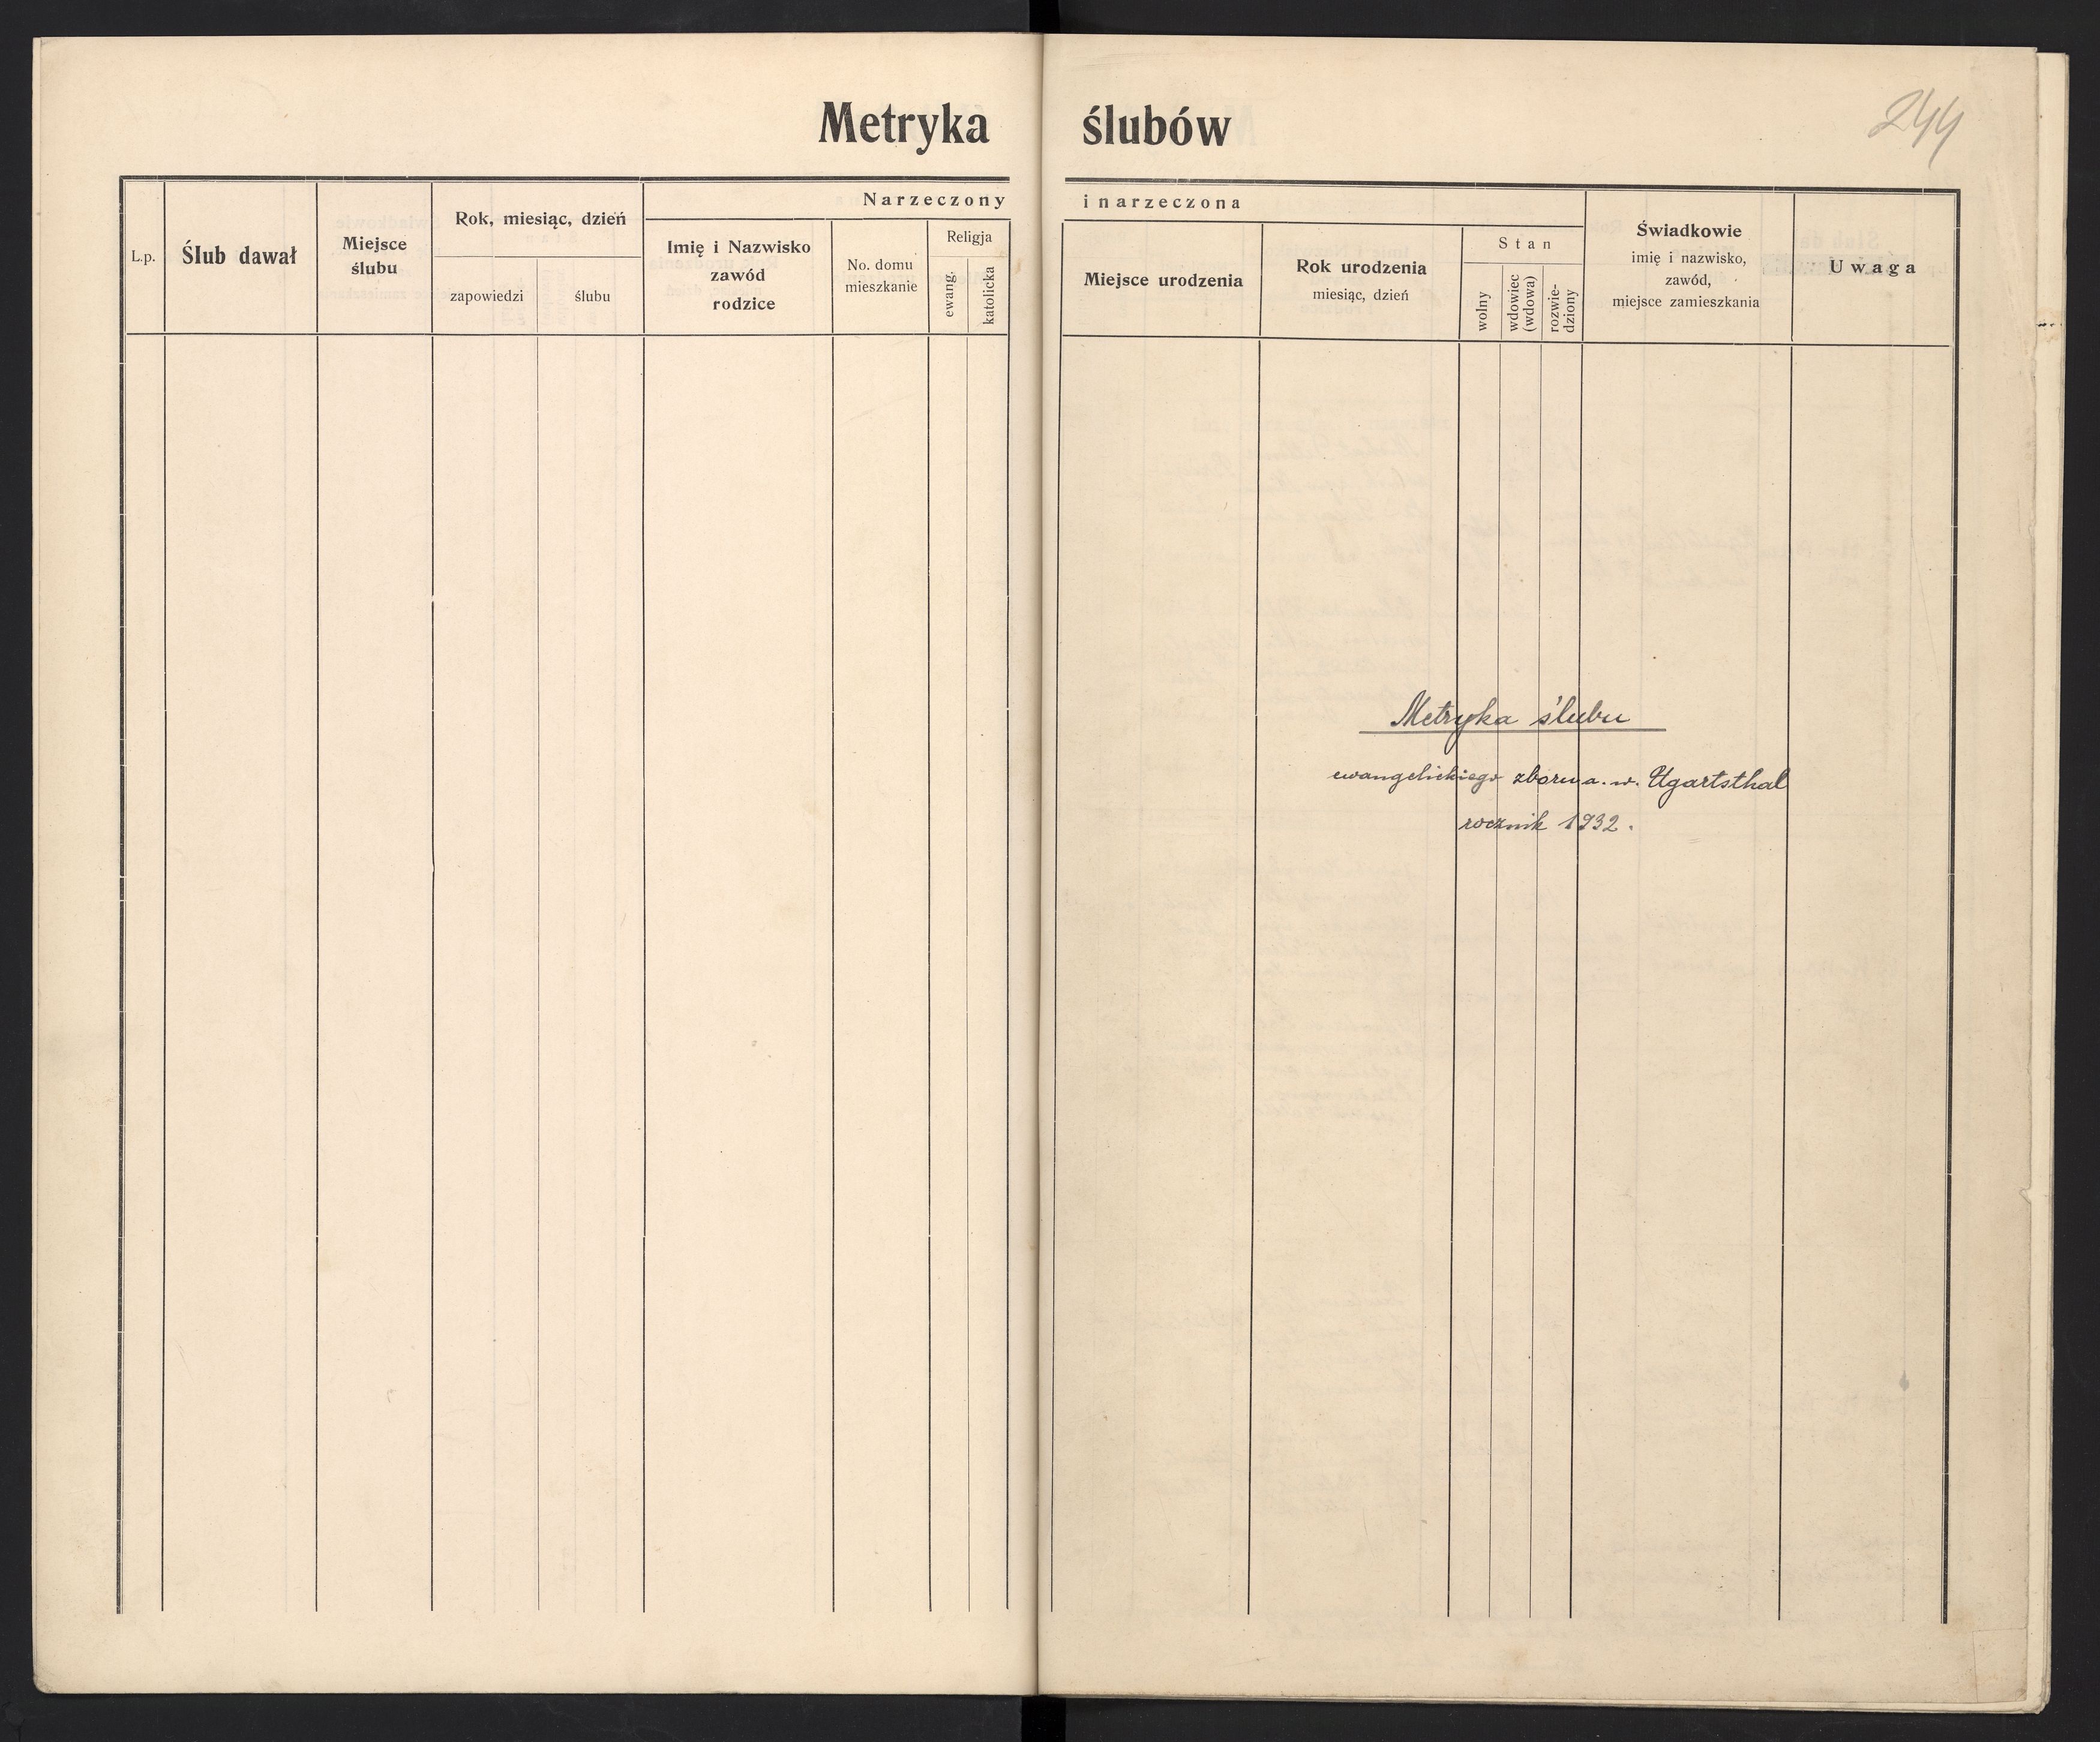 Metryka ślubów
244
L.p.
Ślub dawał
Miejsce
ślubu
Rok, miesiąc, dzień
zapowiedzi
ślubu
Narzeczony i narzeczona
Imię i Nazwisko
zawód
rodzice
No. domu
mieszkanie
Religja
ewang.
katolicka
Miejsce urodzenia
Rok urodzenia
miesiąc, dzień
Stan
wolny
wdowiec
(wdowa)
rozwie-
dziony
Świadkowie
imię i nazwisko,
zawód,
miejsce zamieszkania
Uwaga
Metryka ślubu
ewangelickiego zboru a. w. Ugartsthal
rocznik 1932.